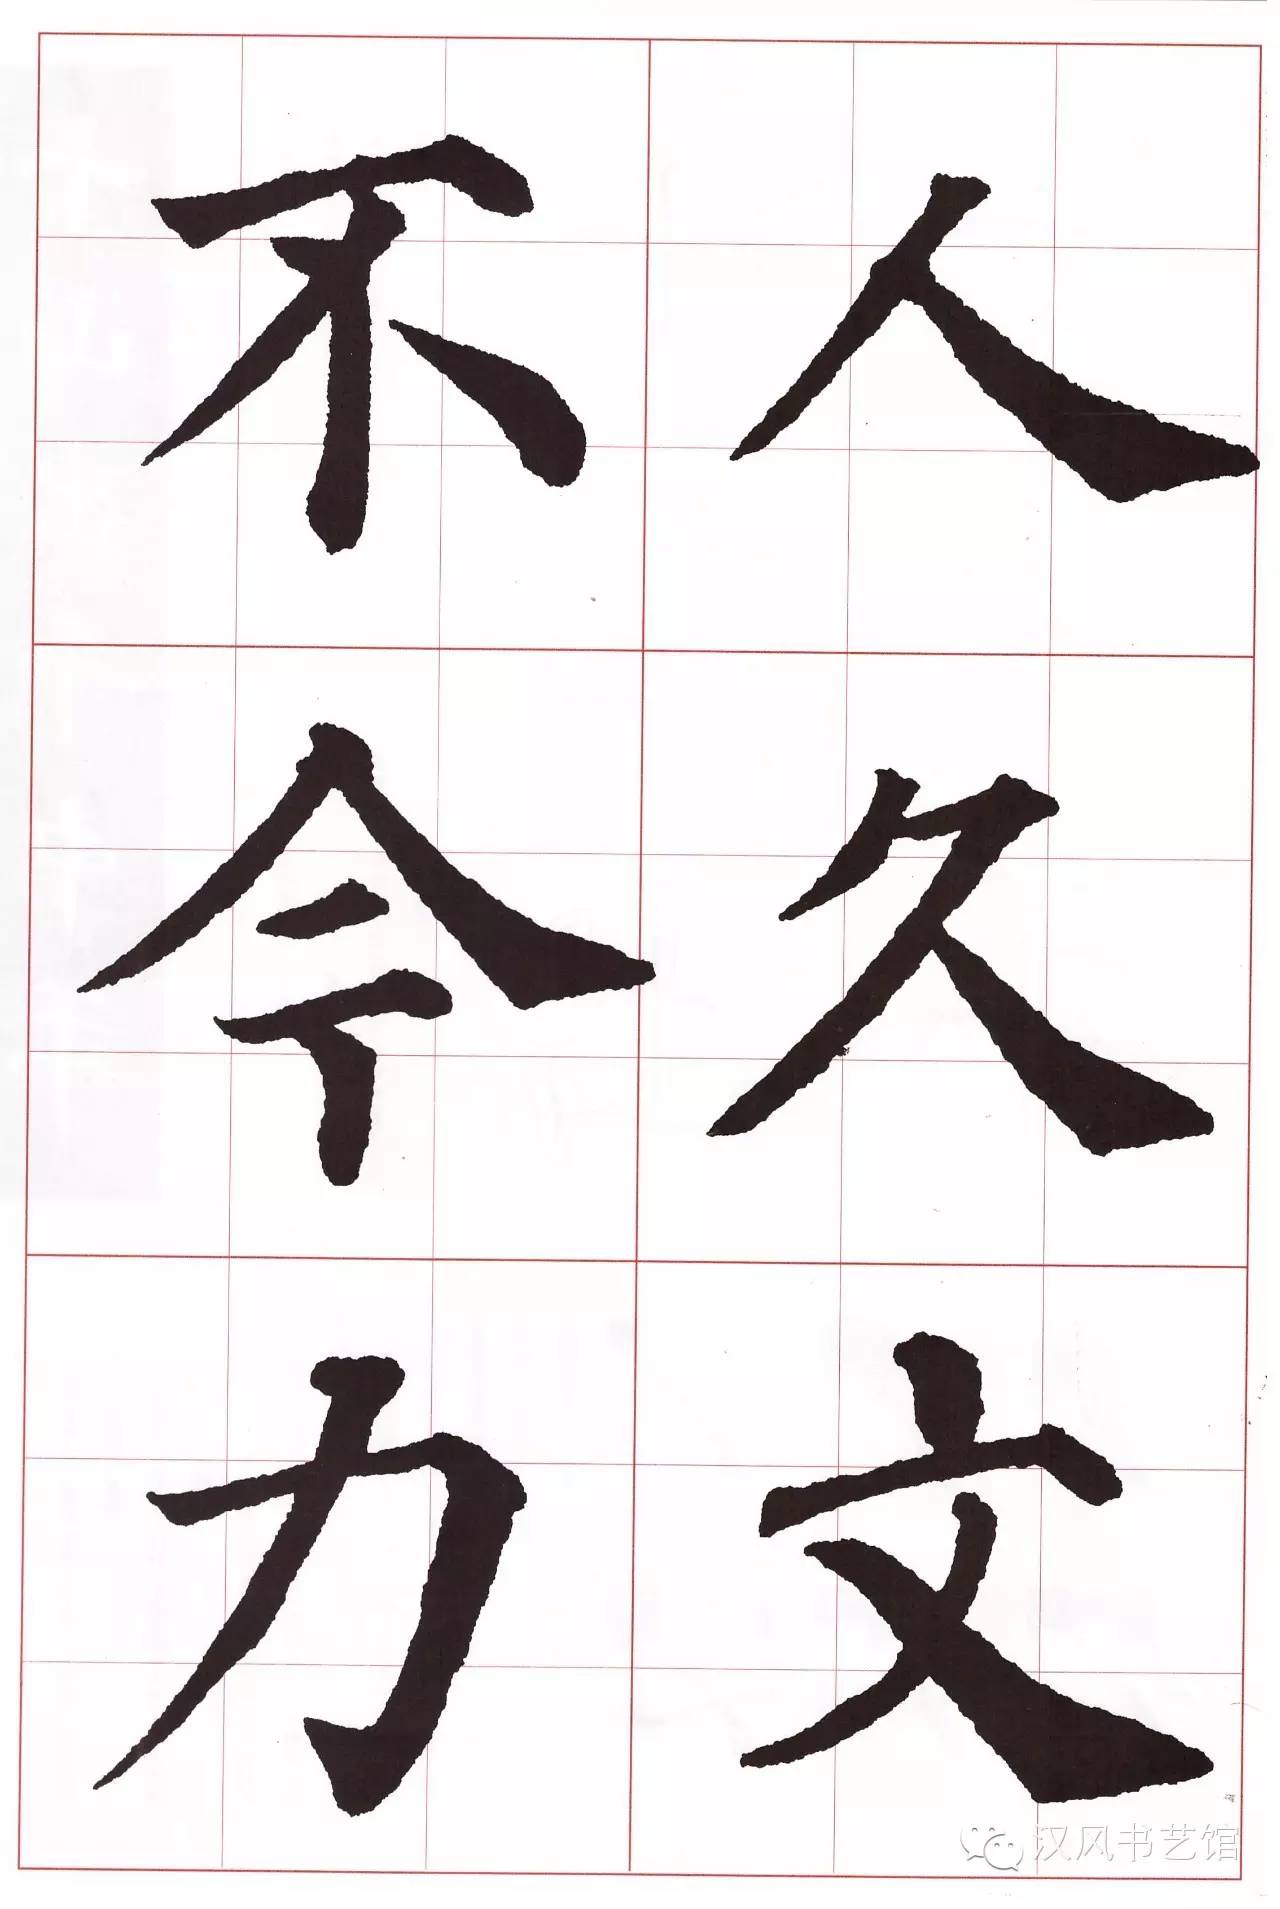 人久文
不今力
汉风书艺馆